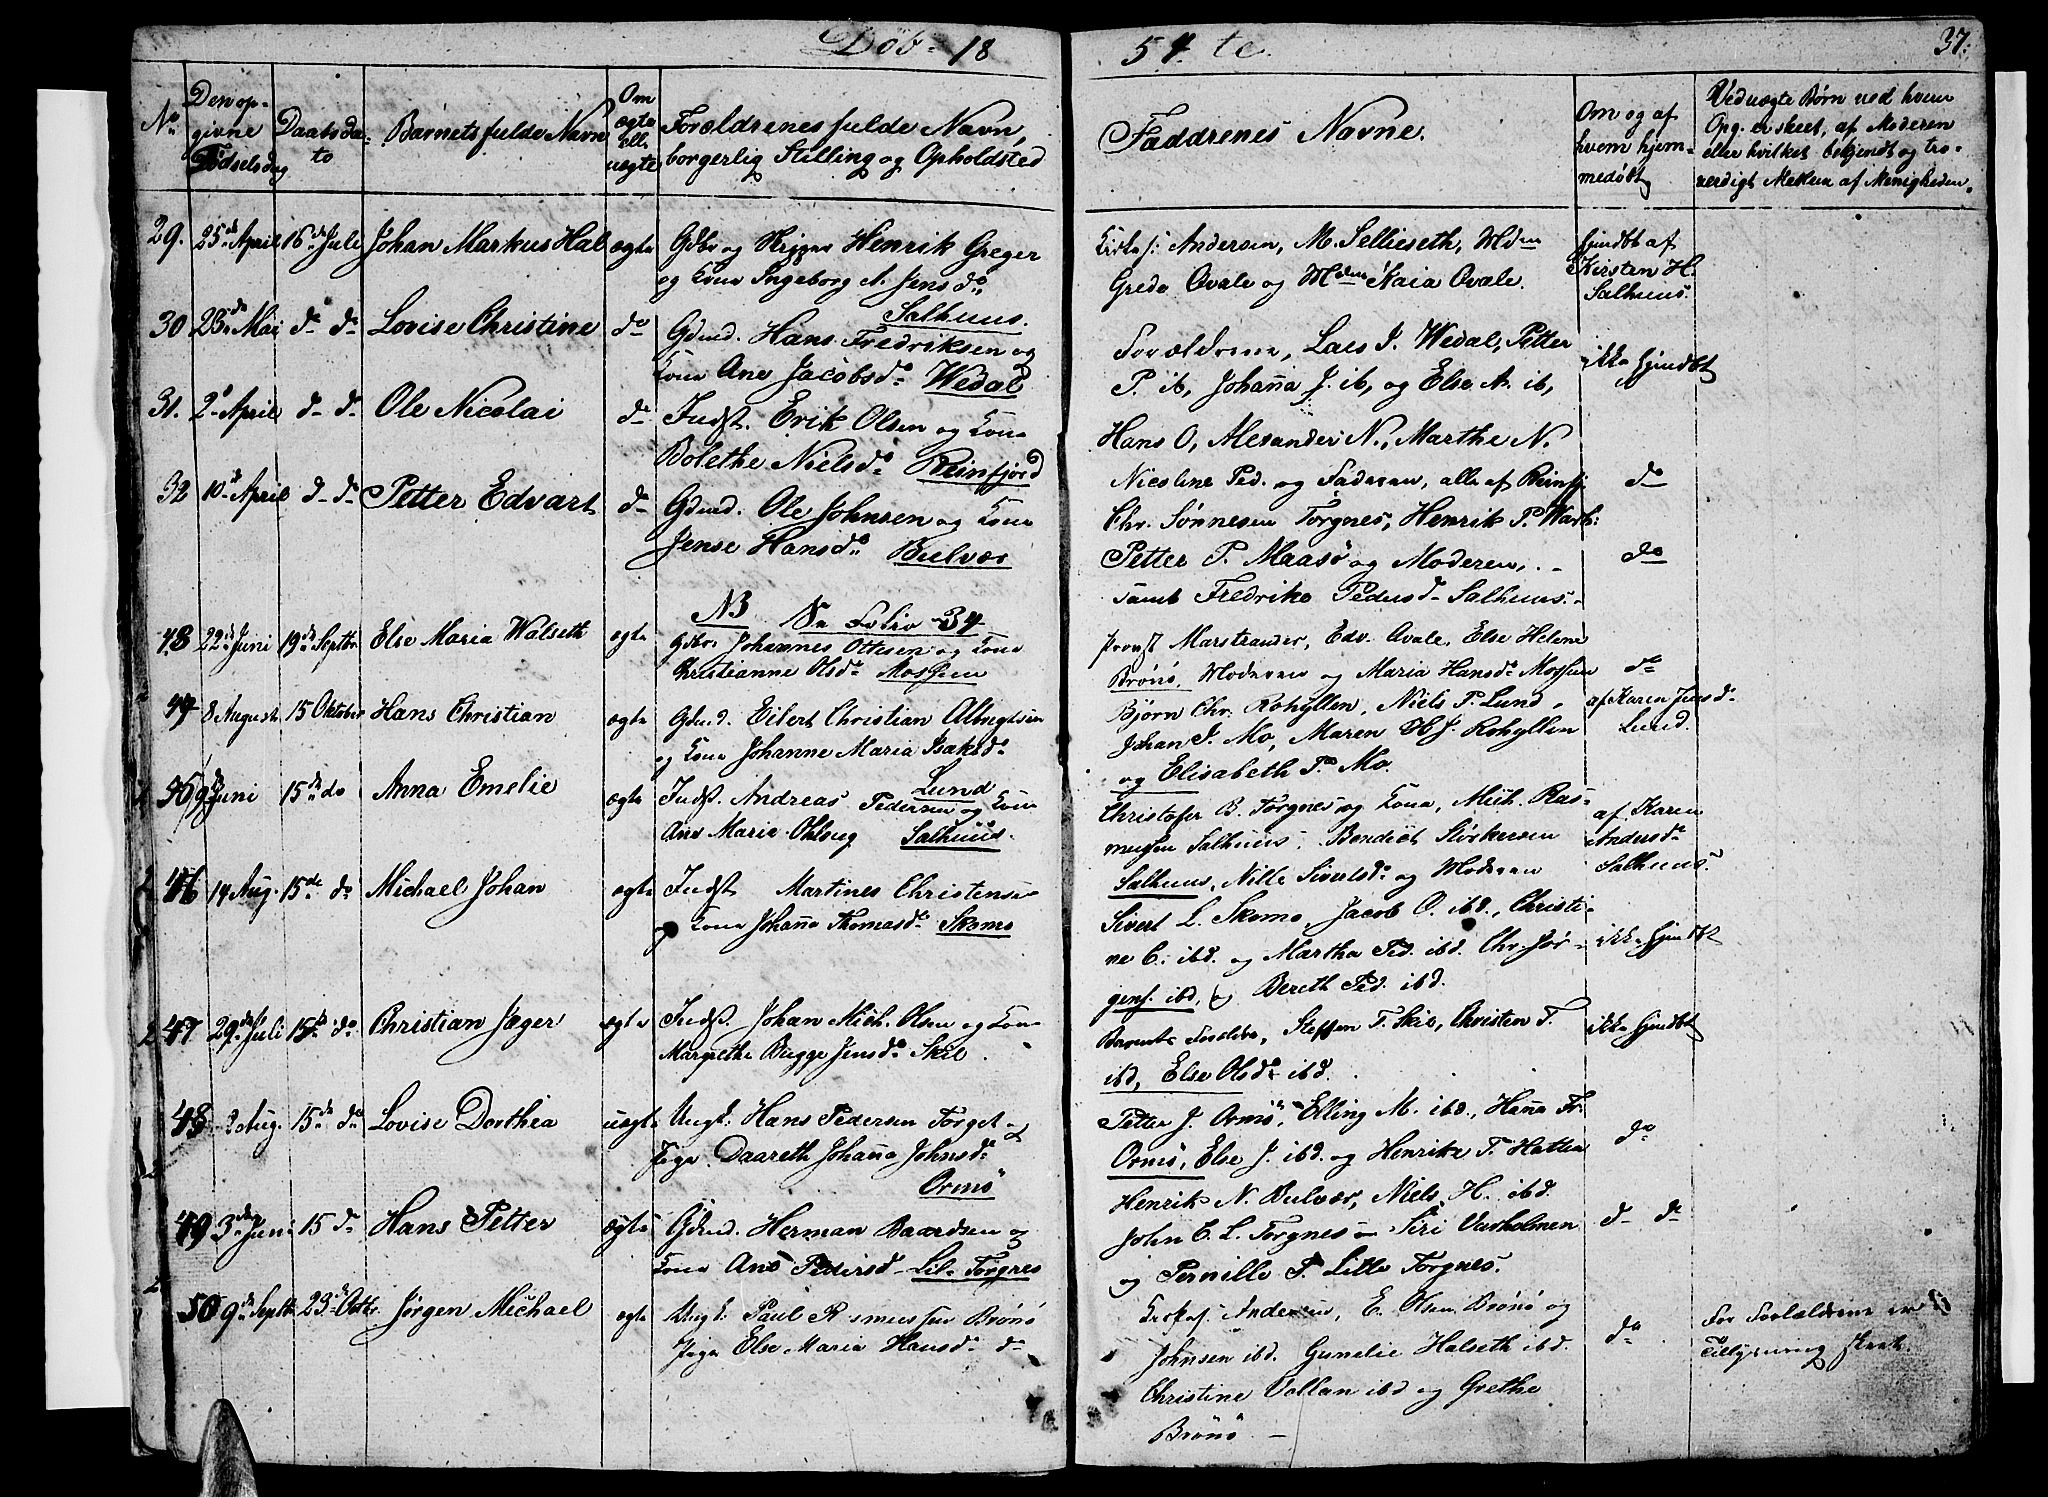 Döb. 18
54 te.
37.
No
Den op-
givne
Födselsdag
Daabsda-
to
Barnets fulde Navn
Om
ægte
Ell.
uægte
Forældrenes fulde Navn,
borgerlig Stilling og Opholdsted
Faddrenes Navne.
Om og af
hvem hjem-
medöbt
Ved uægte Börn ved hvem
Opg. er skeet, af Moderen
eller hvilket bekjendt og tro-
verdigt Medlem af Menigheden.
29. 25de April 16de Juli Johan Markus Hal ægte Gdbr og Henrik Greger
og Kone Ingeborg A. Jensdr
Salhuus.
Kirkes: Andersen, M. Sellieseth, Mdm
Grede Qvale og Mdm Naia Qvale.
hjmdbt af
Kirsten H.
Salhuus.
30 23de Mai do do Lovise Christine do Gdmd. Hans Fredriksen og
Kone Ane Jacobsdr Wedal
Forældrene, Laes J. Wedal, Petter
P. ib, Johaña J. ib, og Else A. ib,
ikke hjmdbt
31. 2d April do do Ole Nicolai do Indst. Erik Olsen og Kone
Bolethe Nielsdr Reinfjord
Hans O, Alexander N., Marthe N.
Nicoline Ped. og Faderen, alle af Reinfj.
do
32 10d April do do Petter Edvart do Gdmd. Ole Johnsen og Kone
Jense Hansdr Buelvær
Chr. Sönnesen Torgnes, Henrik P.
Petter P. Maasö og Moderen,
samt Fredrike Pedersdr Salhuus.
do
NB Se Folio 34
48 22de Juni 19de Septbr. Else Maria Walseth ægte Gdbr. Johannes Ottesen og Kone
Christianne Olsdr Mosheim
Provst Marstrander, Edv. Qvale, Else Helene
Brönö, Moderen og Maria Hansdr
do
44 8 August 15 Oktober Hans Christian ægte Gdmd. Eilert Christian Albrigtsen
og Kone Johanne Maria Isaksdr
Lund
Björn Chr. Rohyllen, Niels P. Lund,
Johan J. Mo, Maren H. J. Rohyllen
og Elisabeth P. Mo.
af Karen Jensdr
Lund.
9de Juni 15de do Anna Emelie ægte Indst. Andreas Pedersen og Kone
Ane Marie Salhuus.
Christofer B. Torgnes og Kone, Mich. Ras-
musen Salhuus, Bendict Störkersen
Salhuus, Nille Sivertsdr og Moderen
af Karen
Andersdr
Salhuus.
46 14 Aug. 15de do Michael Johan ægte Indst Martines Christensen
og Kone Johaña Thomasdr Skomo
Sivert L. Skomo, Jacob O. ibd., Christi-
ne C. ibd. og Martha Ped. ibd. Chr. Jör-
gens. ibd, og Bereth Ped. ibd.
ikke hjmdbt
47 29de Juli 15de do Christian Jæger ægte Indst. Johan Mich. Olsen og Kone
Margrethe Bugge Jensdr Skil.
Steffen T. Skil, Christen T.
ibd, Else Olsdr ibd.
ikke hjmdbt
48 2 Aug. 15de do Lovise Dorthea uægte Ungk. Hans Pedersen Torget og
Pige. Daareth Johana Johnsdr
Ormö
Petter J. Ormö, Elling M. ibd., Hana Fr.
Ormö, Else J. ibd. og Henrike P. Hatten
do
49 3de Juni 15 do Hans Petter ægte Gdmd. Herman Baardsen og
Kone Ane Pedersd Lil. Torgnes
Henrik N. Bulvær, Niels H. ibd.
John C. L. Torgnes Siri Varholmen
og Pernille P. Lille Torgnes.
do do
50 9de Septb 29de Octbr. Jörgen Michael ægte Ungk. Paul Rasmussen Brönö
Pige Else Maria Hansdr do
Andersen, E. Olsen Brönö og
Johnsen ibd. Gunelie Halseth ibd.
Christine Vollan ibd og Grethe
Brönö
do
For Forældrene er
Tillysning skeet.